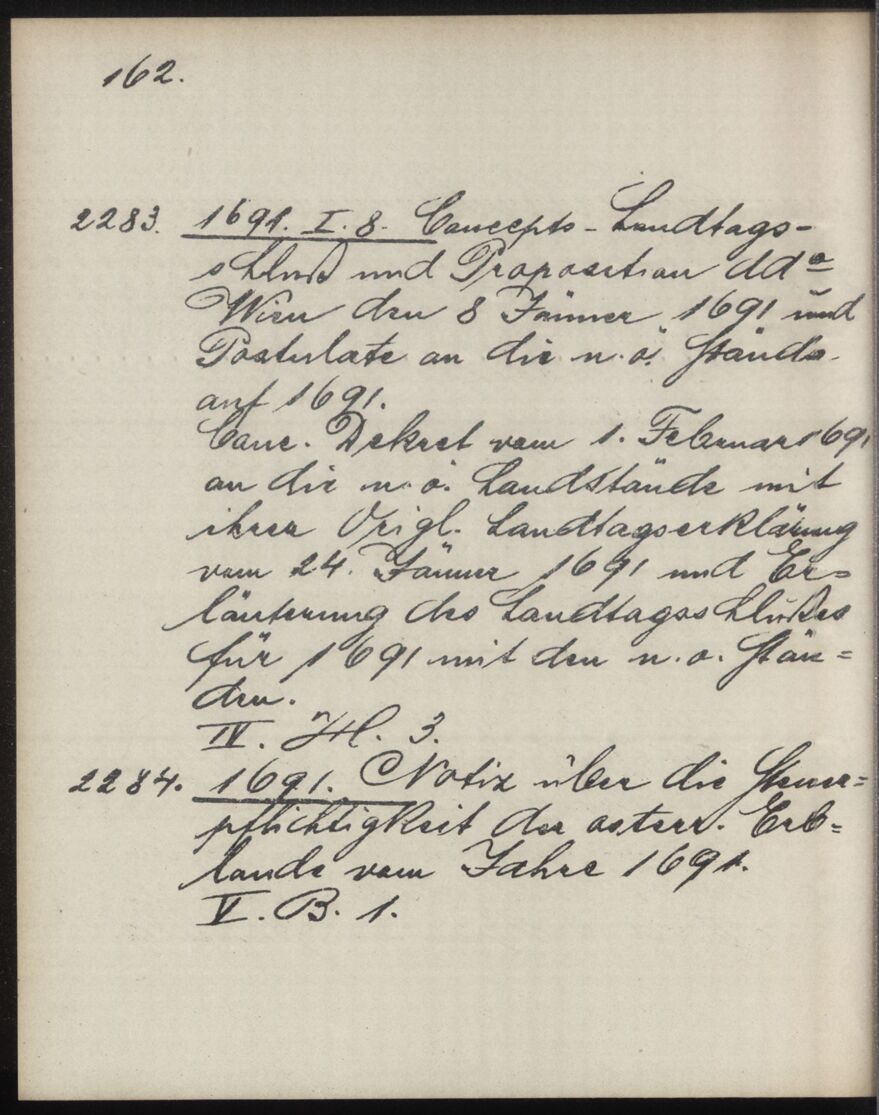 162.
2283. 1691. I. 8. Concepts-Landtags-
schluß und Proposition ddo
Wien den 8 Jänner 1691 und
Postulate an die n.ö. Stände
auf 1691.
Conc. Dekret vom 1. Februar 1691
an die n.ö. Landstände mit
ihrer Origl. Landtagserklärung
vom 24. Jänner 1691 und Er=
läuterung des Landtagsschlußes
für 1691 mit den n.o. Stän=
den.
IV. H. 3.
2284. 1691. Notiz über die Steuer=
pflichtigkeit der osterr. Erb=
lande vom Jahre 1691.
V. B. 1.